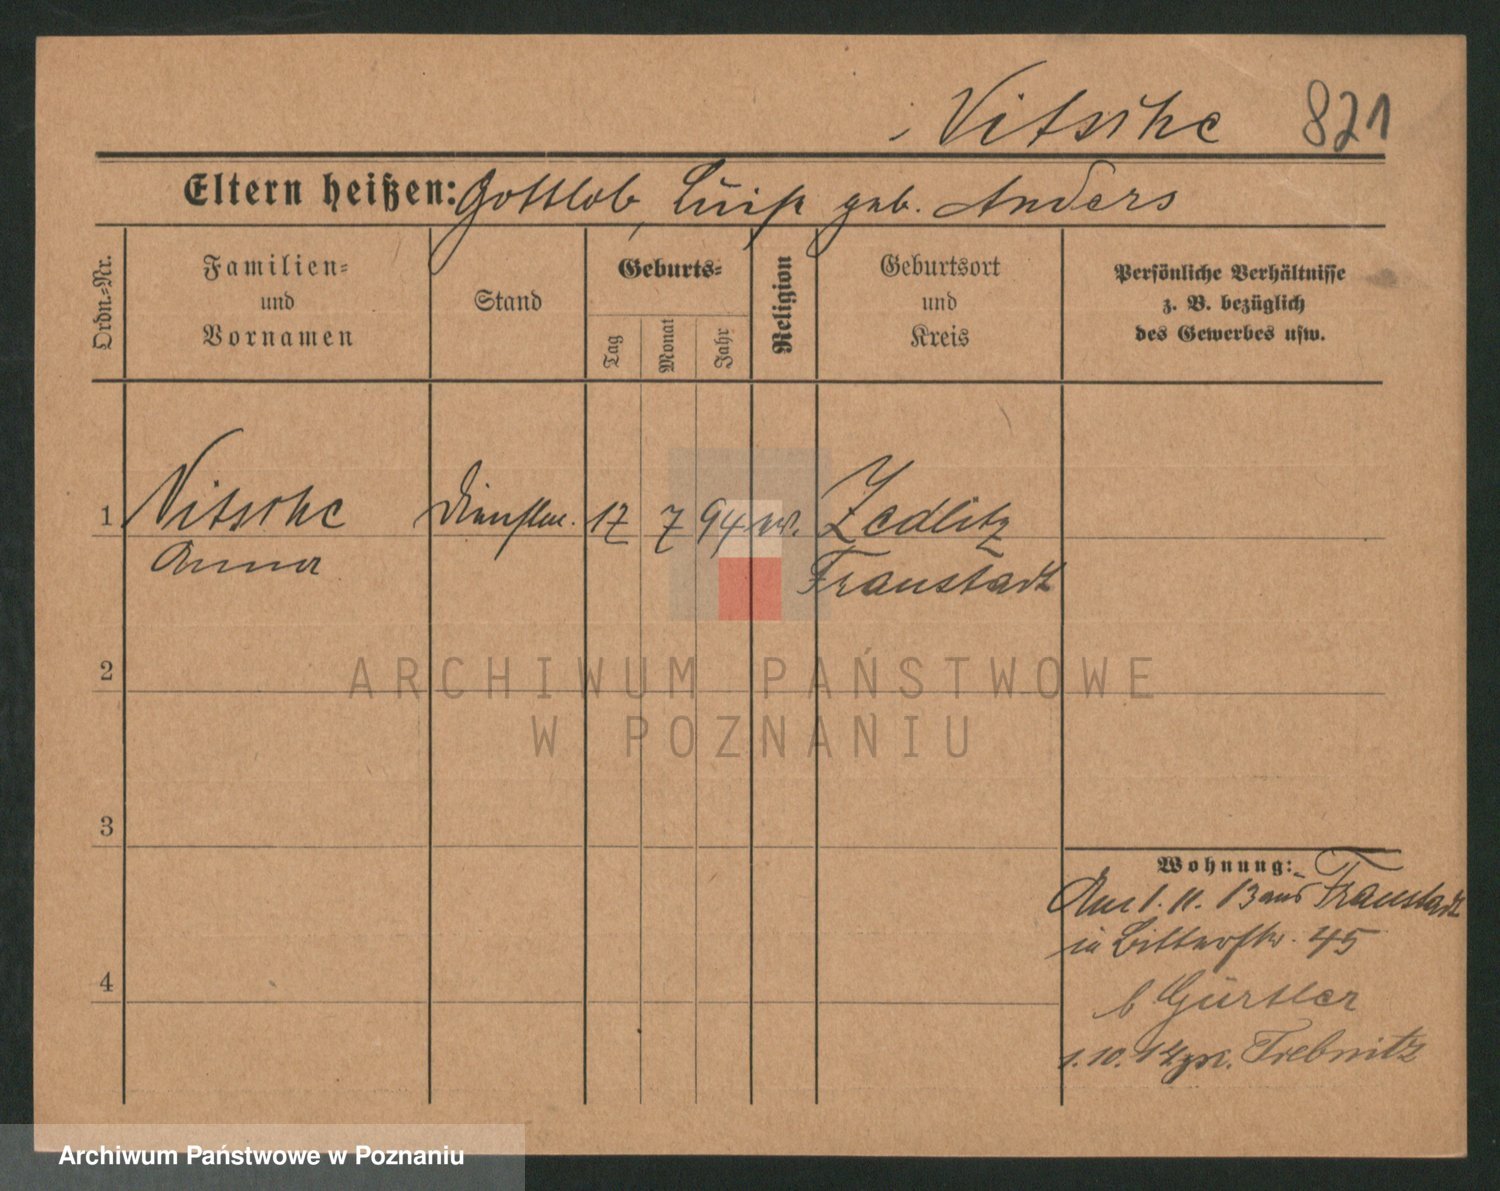 Nitschke 821
Eltern heißen: Gottlob, Luise geb. Anders
Ordn.-Nr.
Familien-
und
Vornamen
Stand
Geburts-
Tag
Monat
Jahr
Religion
Geburtsort
und
Kreis
Persönliche Verhältnisse
z. B. bezüglich
des Gewerbes usw.
1 Nitschke 17 7 94 ev. Zedlitz
Anna Fraustadt
2
ARCHIWUM PAŃSTWOWE
W POZNANIU
3
Wohnung:
Am 1. 11. 13 aus Fraustadt
in Ritterstr. 45
b Gürtler
1. 10. Trebnitz
4
Archiwum Państwowe w Poznaniu